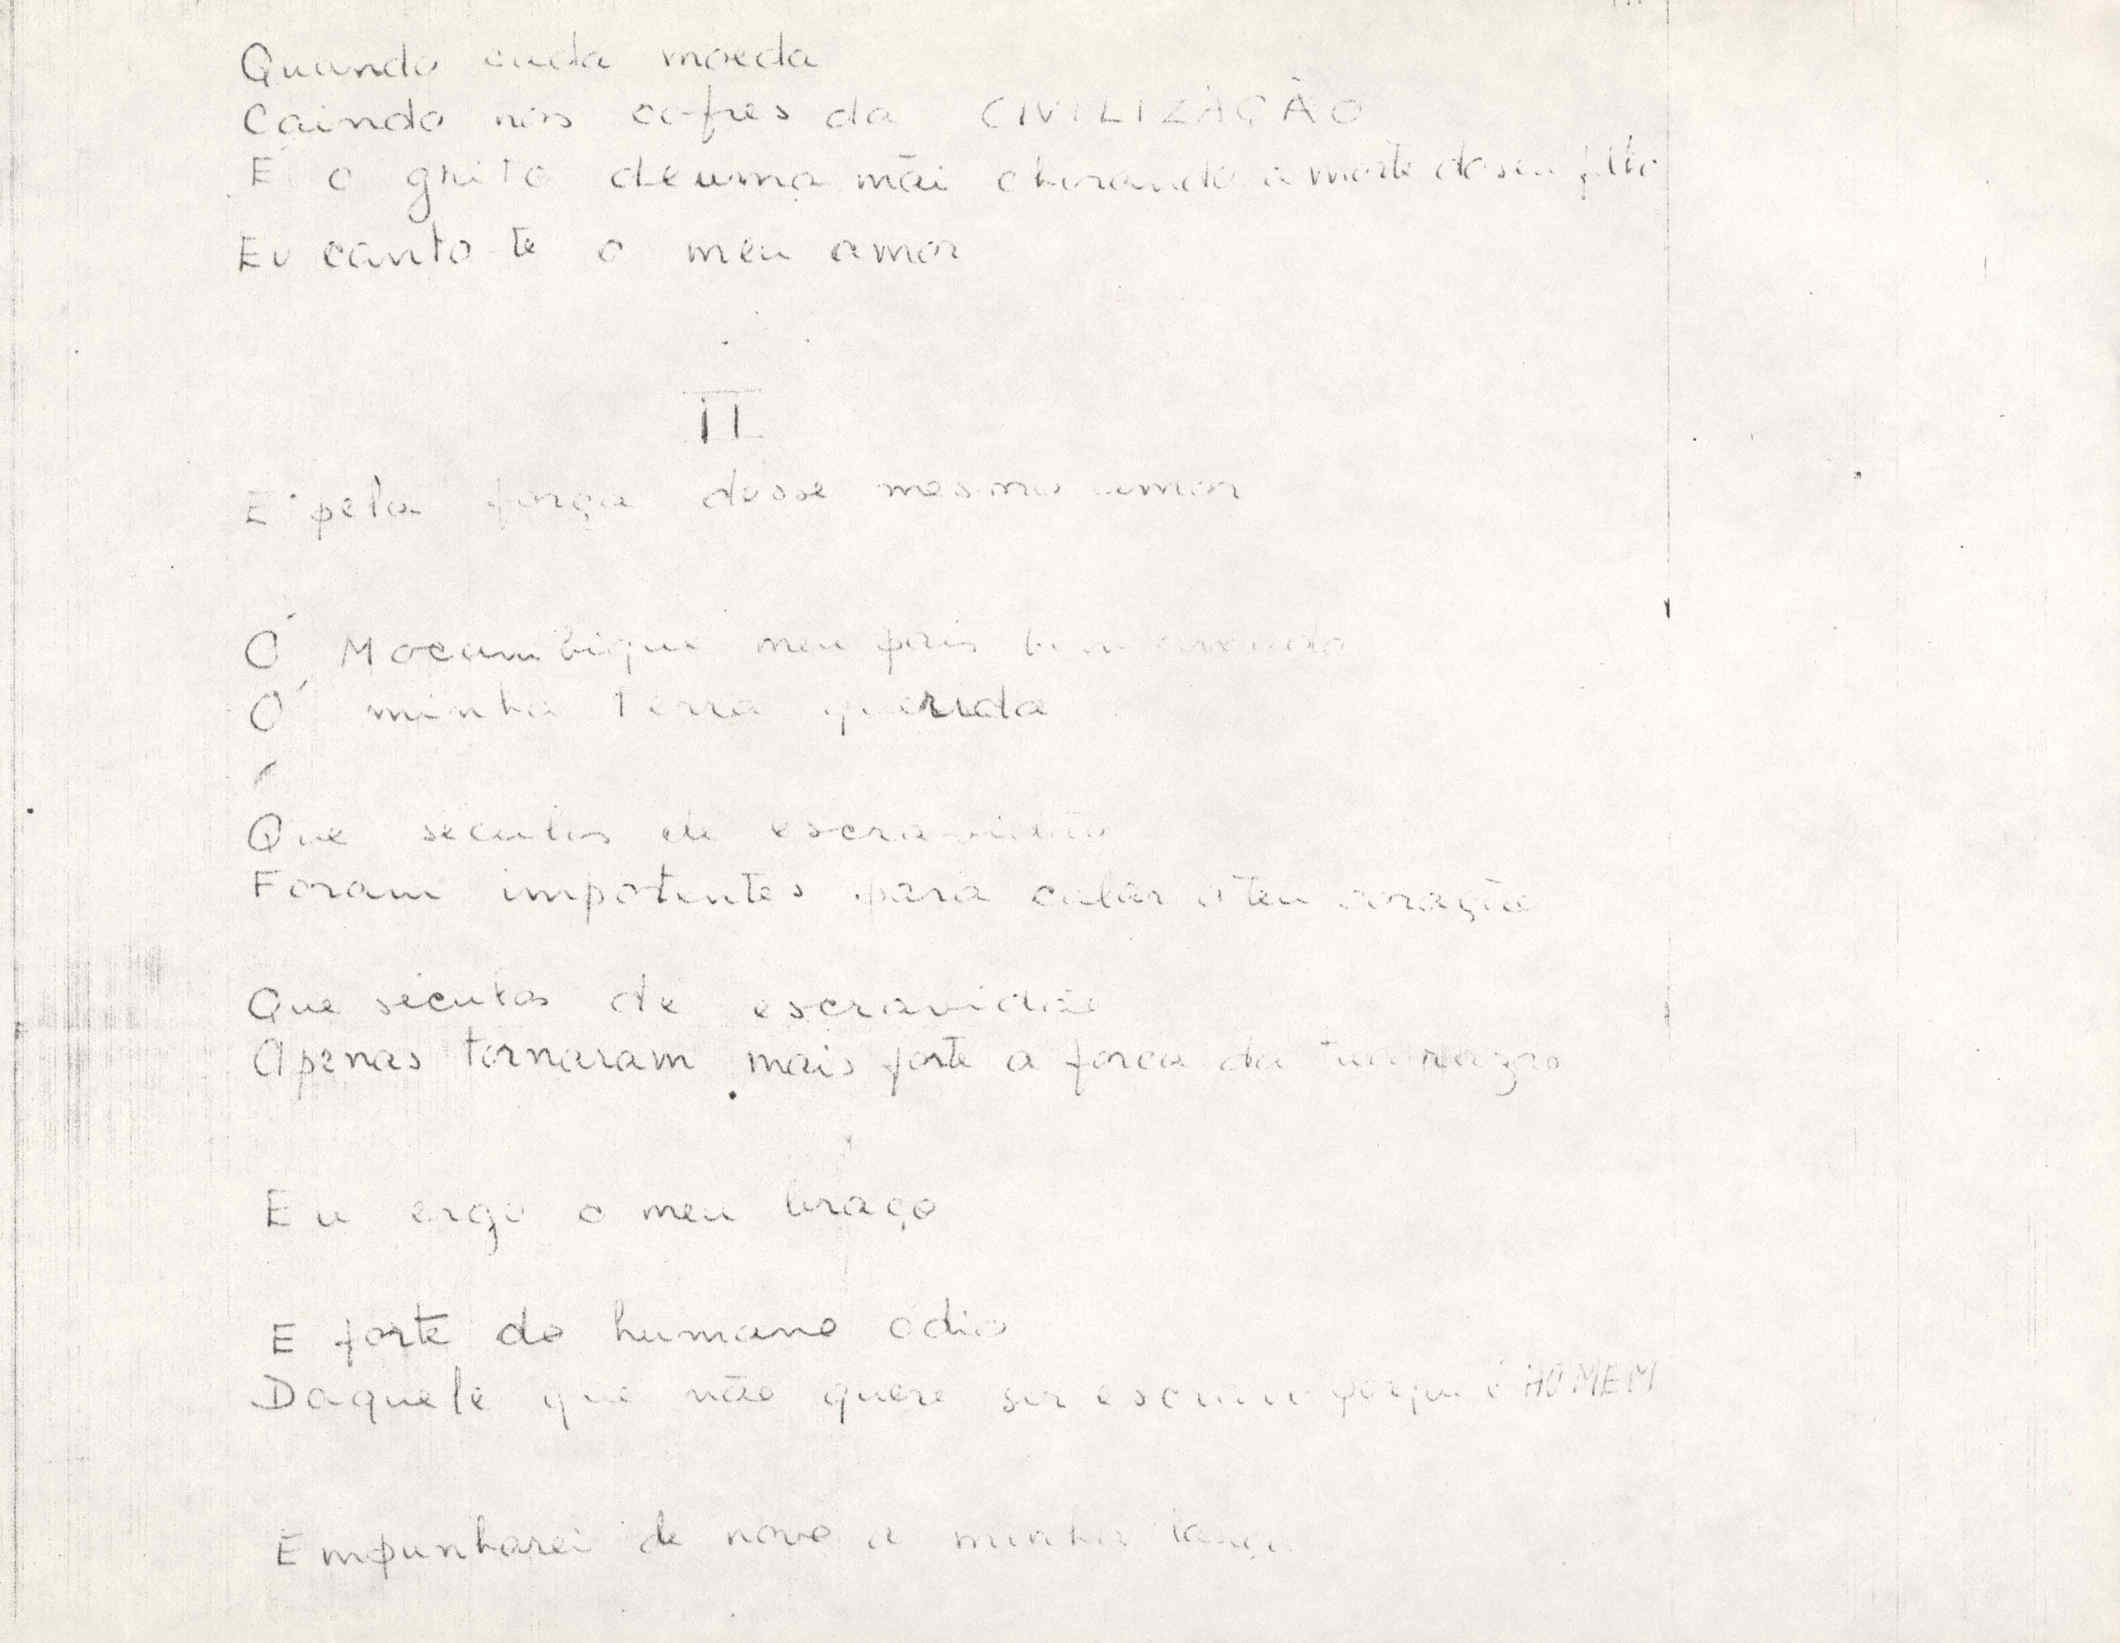 Quando cada moeda
Caindo nos cofres da CIVILIZAÇÃO
É o grito de uma mãi chorando a morte do seu filho
Eu canto-te o meu amor
II
E pela força desse mesmo amor
Ó Moçambique meu pais bem amado
Ó minha terra querida
Que seculos de escravidão
Foram impotentes para calar o teu coração
Que séculos de escravidão
Apenas tornaram mais forte a forca da tua razão
Eu ergo o meu braço
E forte do humano ódio
Daquele que não quere ser escravo porque é HOMEM
Empunharei de novo a minha lança